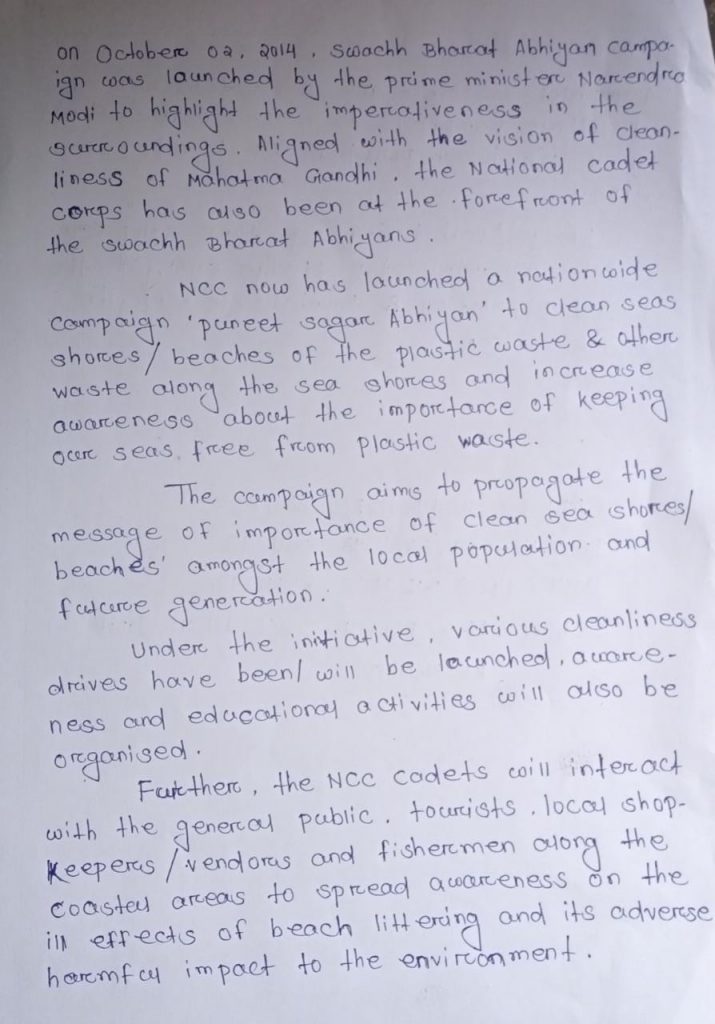 on October 02, 2014, Swachh Bharat Abhiyan campa-
ign was launched by the prime minister Narendra
Modi to highlight the imperativeness in the
surroundings. Aligned with the vision of clean-
liness of Mahatma Gandhi, the National cadet
corps has also been at the forefront of
the swachh Bharat Abhiyans.
NCC now has launched a nationwide
Campaign 'puneet sagar Abhiyan' to clean seas
shores/ beaches of the plastic waste & other
waste along the sea shores and increase
awareness about the importance of keeping
our seas free from plastic waste.
The campaign aims to propagate the
message of importance of clean sea shores/
beaches' amongst the local population and
future generation.
Under the initiative, various cleanliness
drives have been/ will be launched, aware-
ness and educational activities will also be
organised.
Further, the NCC cadets will interact
with the general public, tourists, local shop-
keepers /vendors and fishermen along the
coastal areas to spread awareness on the
ill effects of beach littering and its adverse
harmful impact to the environment.